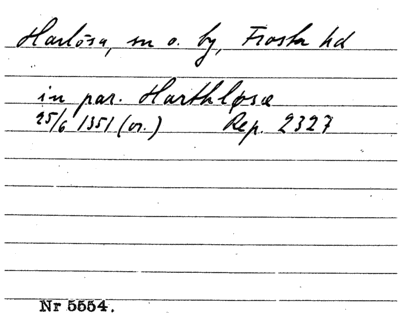 Harlösa, sn o. by, Frosta hd
in par. Harthløsæ
25/6 1351 (or.) Rep. 2327
Nr 5554.